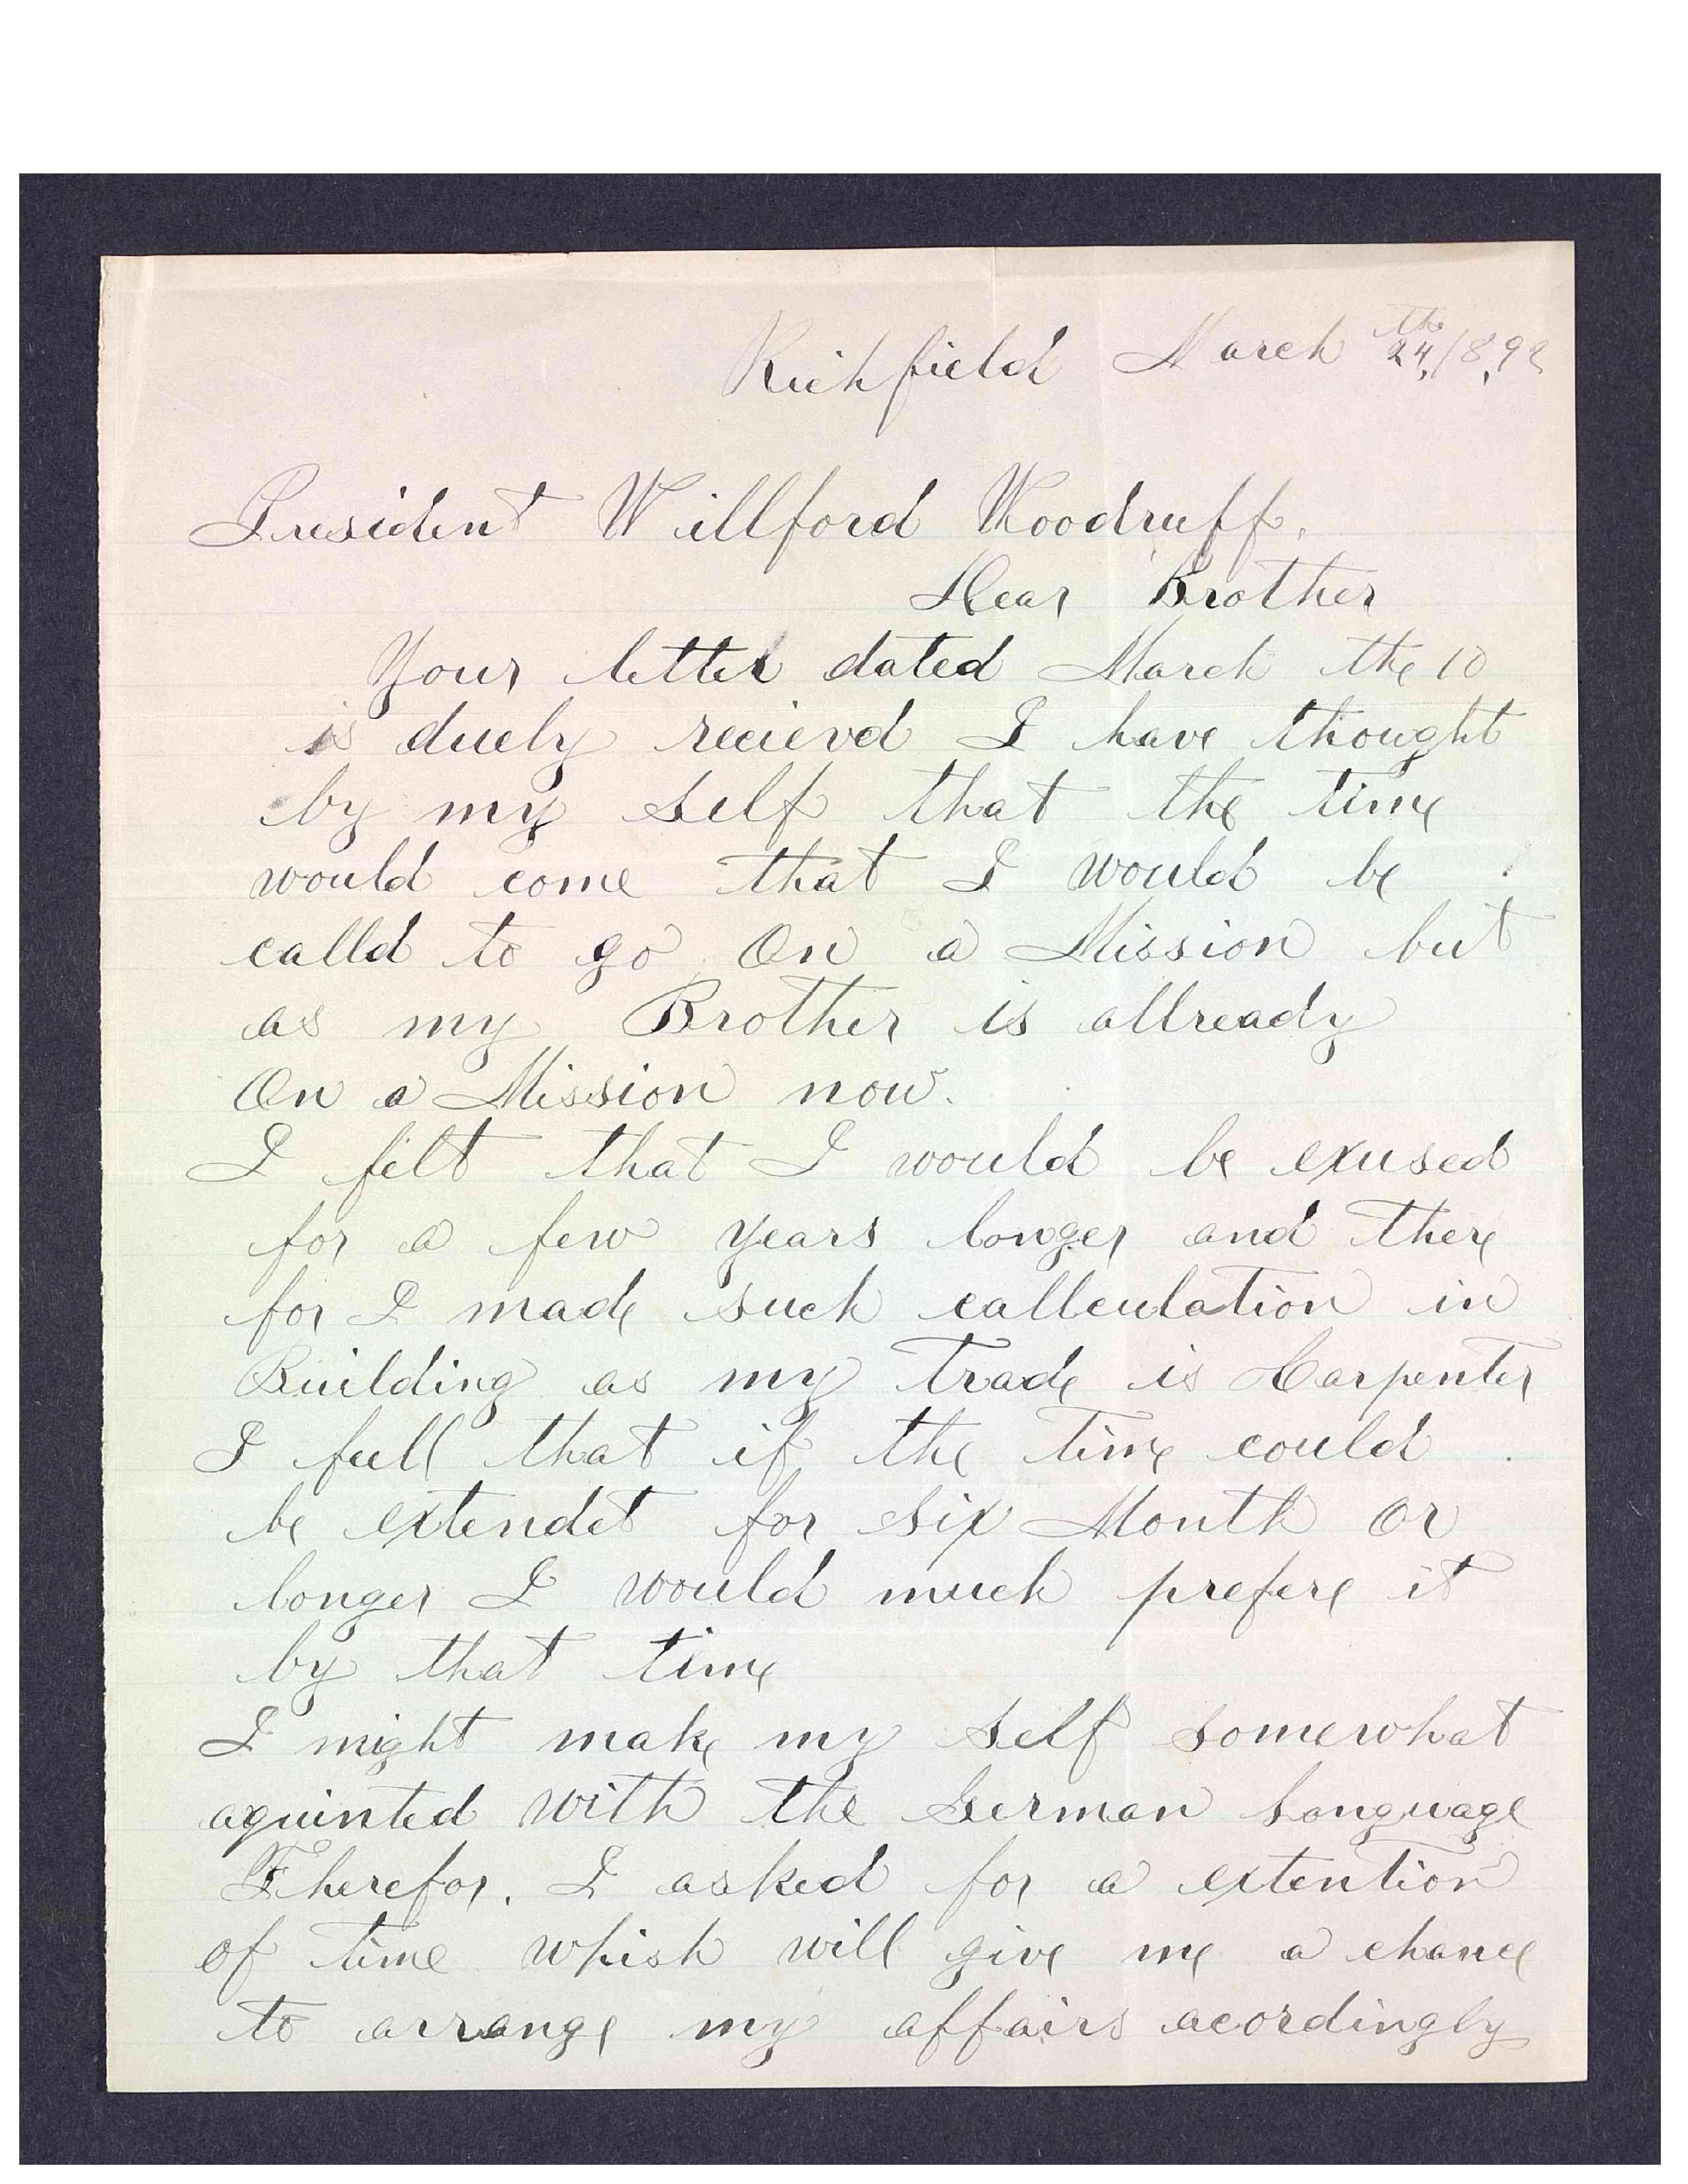 Richfield March 24th, /8,92
President Willford Woodruff.
Dear Brother
Your letter dated March the 10
is duely recievd I have thought
by my self that the time
would come that I would be
calld to go On a Mission but
as my Brother is allready
On a Mission now.
I felt that I would be exused
for a few years longer and there
for I made such callculation in
Building as my trade is Carpenter
I feell that if the time could
be extendet for six Month or
longer I would much prefere it
by that time
I might make my self somewhat
aquinted with the German language
Therefor. I asked for a extention
of time whish will give me a chance
to arrange my affairs acordingly